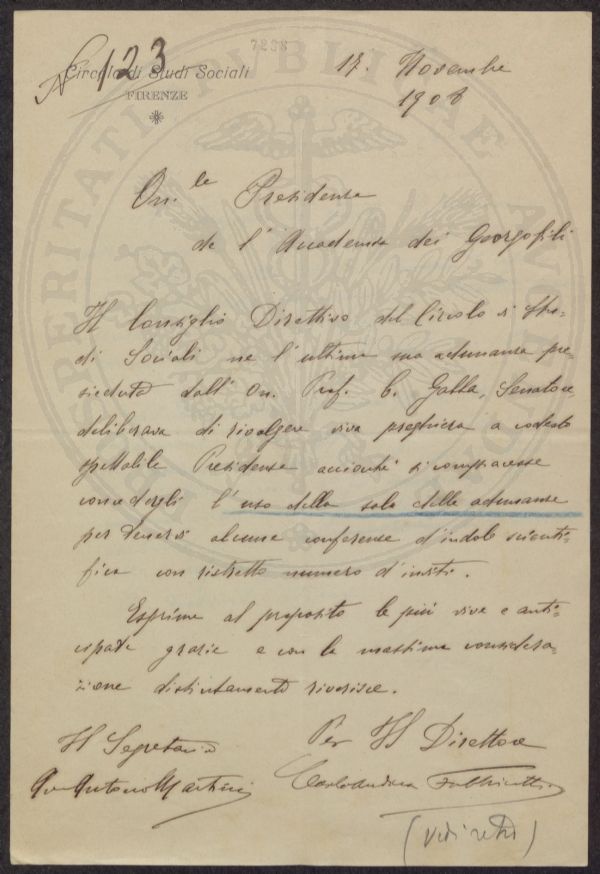 7298
Nº 123
Circolo di Studi Sociali
FIRENZE
17. Novembre
1908
On.le Presidenza
de l'Accademia dei Georgofili
Il Consiglio Direttivo del Circolo di Stu-
di Sociali ne l'ultima sua adunanza pre-
sieduta dall'On. Prof. C. Gabba, Senatore,
deliberava di rivolgere viva preghiera a codesta
spettabile Presidenza acciocché si compiacesse
concedergli l'uso della sala delle adunanze
per tenervi alcune conferenze d'indole scienti-
fica con ristretto numero d'inviti.
Esprime al proposito le più vive e anti-
cipate grazie e con la massima considera-
zione distintamente riverisce.
Il Segretario
Per Il Direttore
Avv Antonio Martini
Carlo Andrea Fabbricotti
(vedi retro)
PROSPERITATI PUBLICAE AUGENDAE